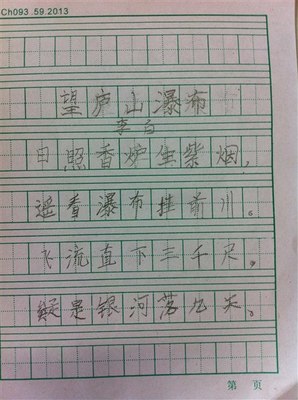 Ch093.59.2013
望庐山瀑布
李白
日照香炉生紫烟,
遥看瀑布挂前川。
飞流直下三千尺。
疑是银河落九天。
第 页